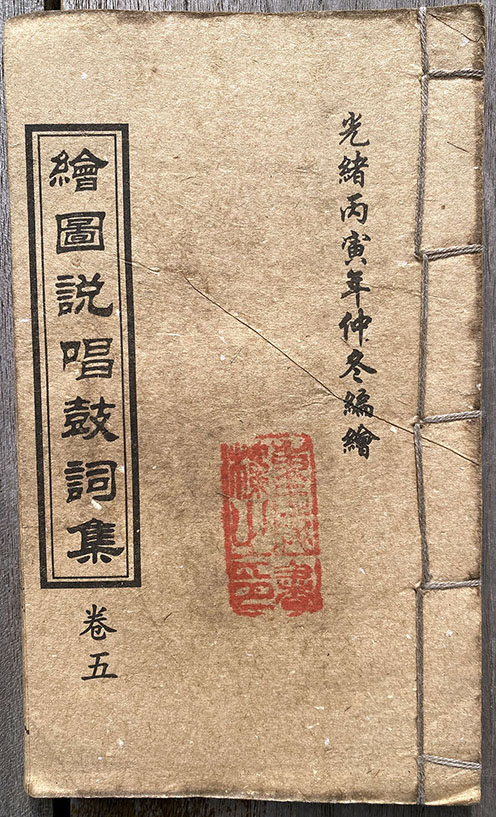 光緒丙寅年仲冬編繪
繪圖説唱鼓詞集
卷五